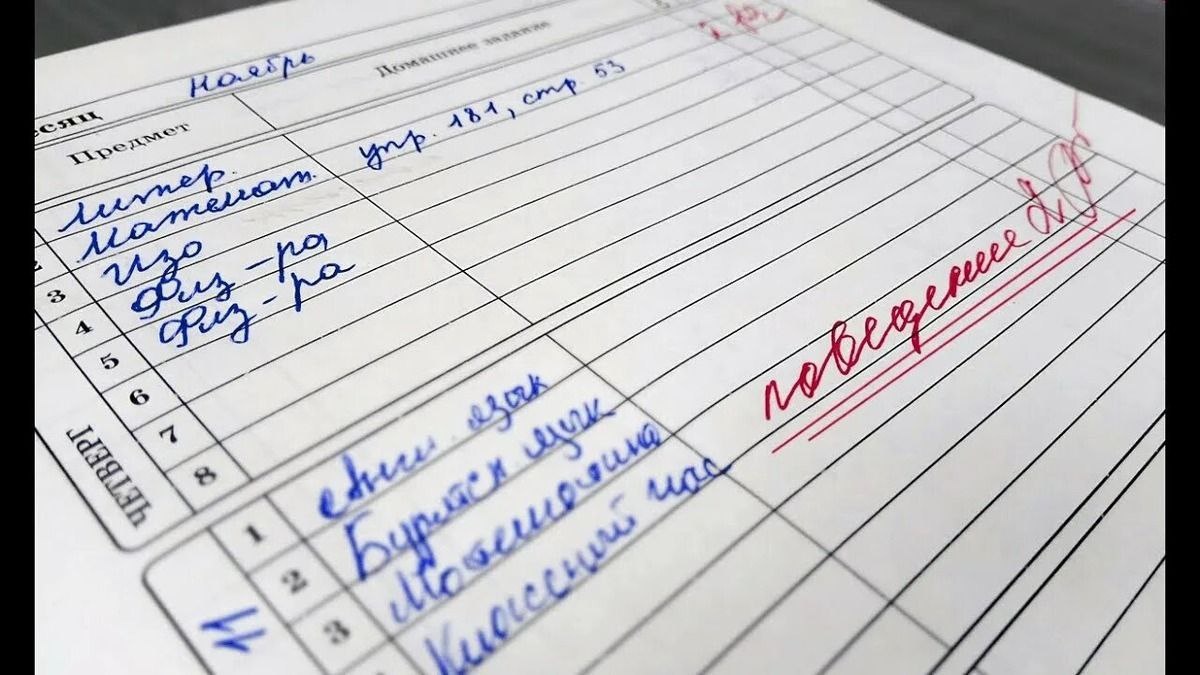 есяц Ноябрь
Предмет Домашнее задание
Литер.
2 Математ. упр. 181, стр. 53
3 Изо
4 Физ-ра
5 Физ-ра
6
7
8
ЧЕТВЕРГ
поведение 2
1 Англ. язык
2 Бурятск. язык
3 Математика
Классный час
11